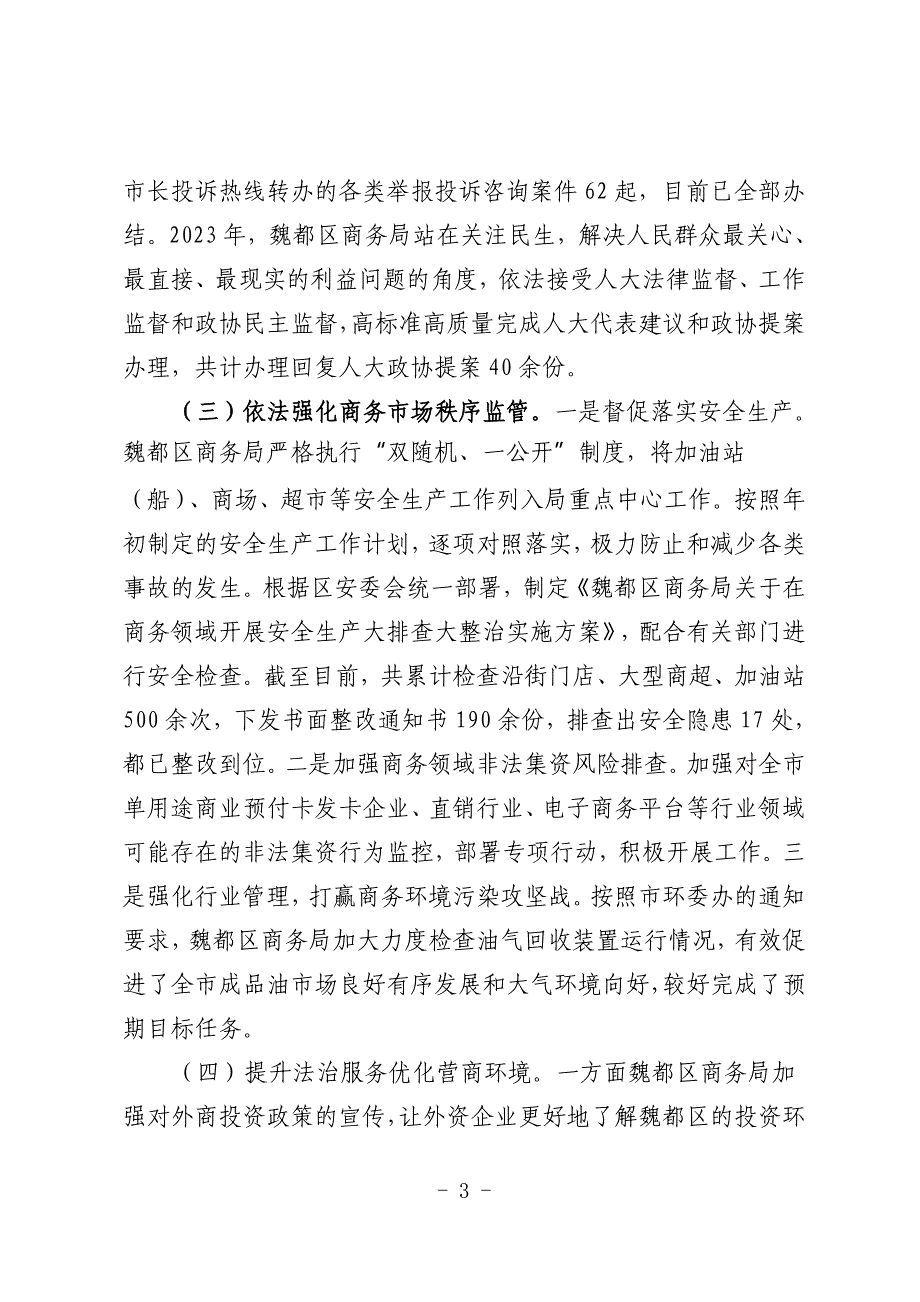 市长投诉热线转办的各类举报投诉咨询案件 62 起，目前已全部办
结。2023 年，魏都区商务局站在关注民生，解决人民群众最关心、
最直接、最现实的利益问题的角度，依法接受人大法律监督、工作
监督和政协民主监督，高标准高质量完成人大代表建议和政协提案
办理，共计办理回复人大政协提案 40 余份。
（三）依法强化商务市场秩序监管。一是督促落实安全生产。
魏都区商务局严格执行“双随机、一公开”制度，将加油站
（船）、商场、超市等安全生产工作列入局重点中心工作。按照年
初制定的安全生产工作计划，逐项对照落实，极力防止和减少各类
事故的发生。根据区安委会统一部署，制定《魏都区商务局关于在
商务领域开展安全生产大排查大整治实施方案》，配合有关部门进
行安全检查。截至目前，共累计检查沿街门店、大型商超、加油站
500 余次，下发书面整改通知书 190 余份，排查出安全隐患 17 处，
都已整改到位。二是加强商务领域非法集资风险排查。加强对全市
单用途商业预付卡发卡企业、直销行业、电子商务平台等行业领域
可能存在的非法集资行为监控，部署专项行动，积极开展工作。三
是强化行业管理，打赢商务环境污染攻坚战。按照市环委办的通知
要求，魏都区商务局加大力度检查油气回收装置运行情况，有效促
进了全市成品油市场良好有序发展和大气环境向好，较好完成了预
期目标任务。
（四）提升法治服务优化营商环境。一方面魏都区商务局加
强对外商投资政策的宣传，让外资企业更好地了解魏都区的投资环
- 3 -